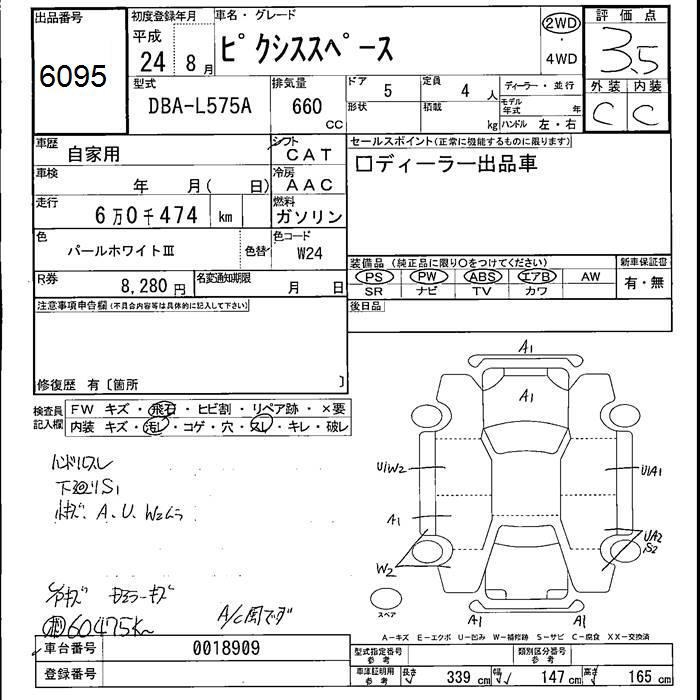 出品番号
6095
初度登録年月
平成
24年 8月
車名・グレード
ピクシススペース
2WD
・
4WD
評価点
3.5
外装 内装
C C
型式
DBA-L575A
排気量
660
CC
ドア 5
形状
定員 4 人
積載 kg
ディーラー・並行
モデル年式 年
ハンドル 左・右
車歴
自家用
シフト
CAT
車検
年 月( 日)
冷房
AAC
走行
6万0千474 km
燃料
ガソリン
色
パールホワイトⅢ
色替
色コード
W24
R券
8,280円
名変通知期限
月 日
セールスポイント(正常に機能するものに限ります)
口ディーラー出品車
装備品 (純正品に限り○をつけてください)
PS PW ABS エアB AW
SR ナビ TV カワ
新車保証書
有・無
後日品
注意事項申告欄(不具合内容等は具体的に記入して下さい)
修復歴 有〔箇所 〕
検査員記入欄
FW キズ・飛石・ヒビ割・リペア跡・×要
内装 キズ・汚レ・コゲ・穴・スレ・キレ・破レ
ハンドルスレ
下廻りS1
A、U、W2
60475K
A1
A1
U1W2
U1A1
A1
UA2
S2
W2
スペア
A1
A1
A-キズ E-エクボ U-凹み W-補修跡 S-サビ C-腐食 XX-交換済
車台番号
0018909
登録番号
型式指定番号
参考
類別区分番号
参考
車庫証明用
参考
長さ 339 cm
幅 147 cm
高さ 165 cm